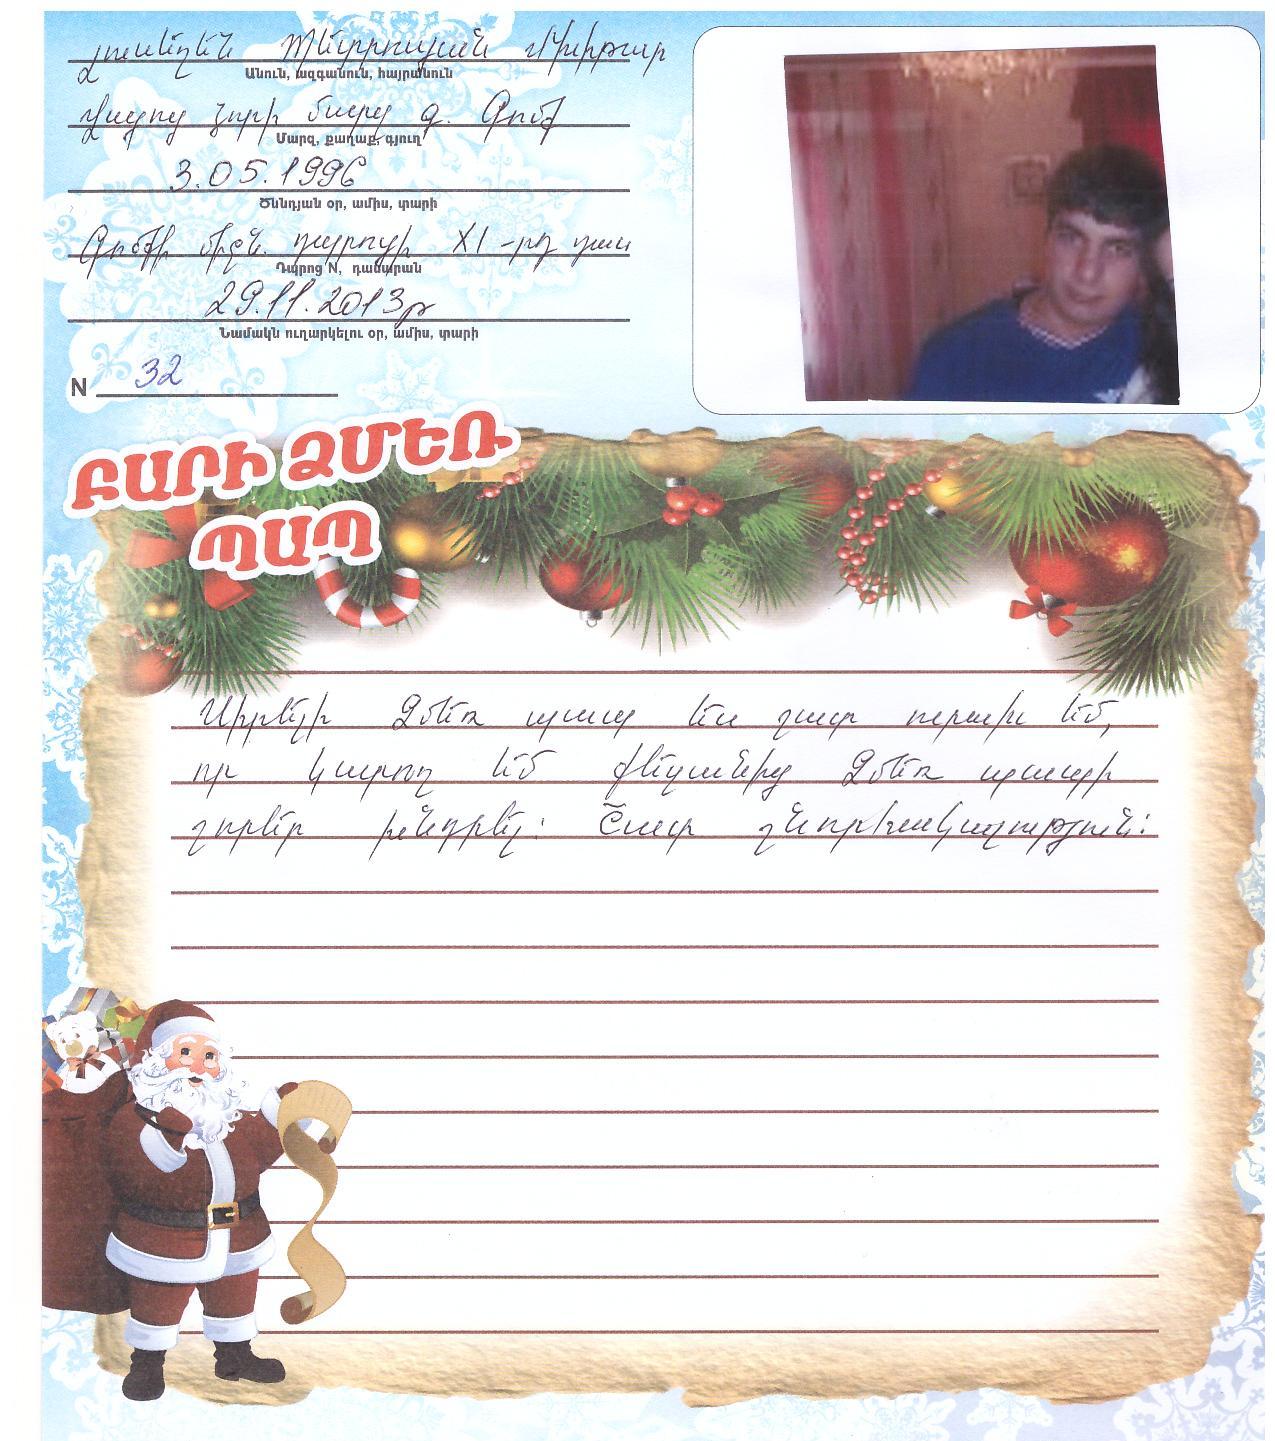 Պետրոսյան Մխիթար
Անուն, ազգանուն, հայրանուն
Վայոց ձորի մարզ գ. Գոմք
Մարզ, քաղաք, գյուղ
3.05.1996
Ծննդյան օր, ամիս, տարի
միջն. դպրոցի XI-րդ դաս
Դպրոց N, դասարան
29.11.2013թ
Նամակն ուղարկելու օր, ամիս, տարի
N 32
ԲԱՐԻ ՁՄԵՌ
ՊԱՊ
Սիրելի Ձմեռ պապ ես շատ ուրախ եմ,
որ կարող եմ քեզանից Ձմեռ պապի
շորեր խնդրել: Շատ շնորհակալություն: